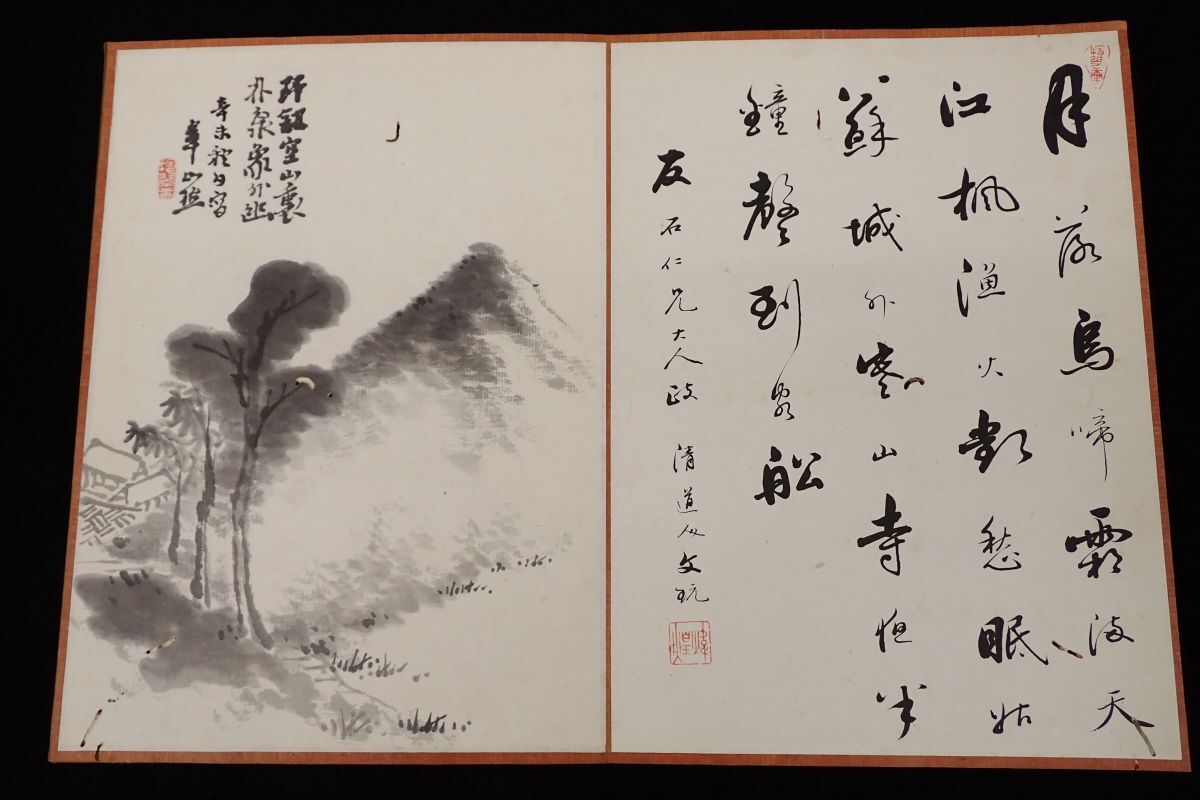 月落烏啼霜滿天
江楓漁火對愁眠姑
蘇城外寒山寺夜半
鐘聲到客船
友石仁兄大人政 清道人文玩
空山
泉象外
辛未秋日寫
山